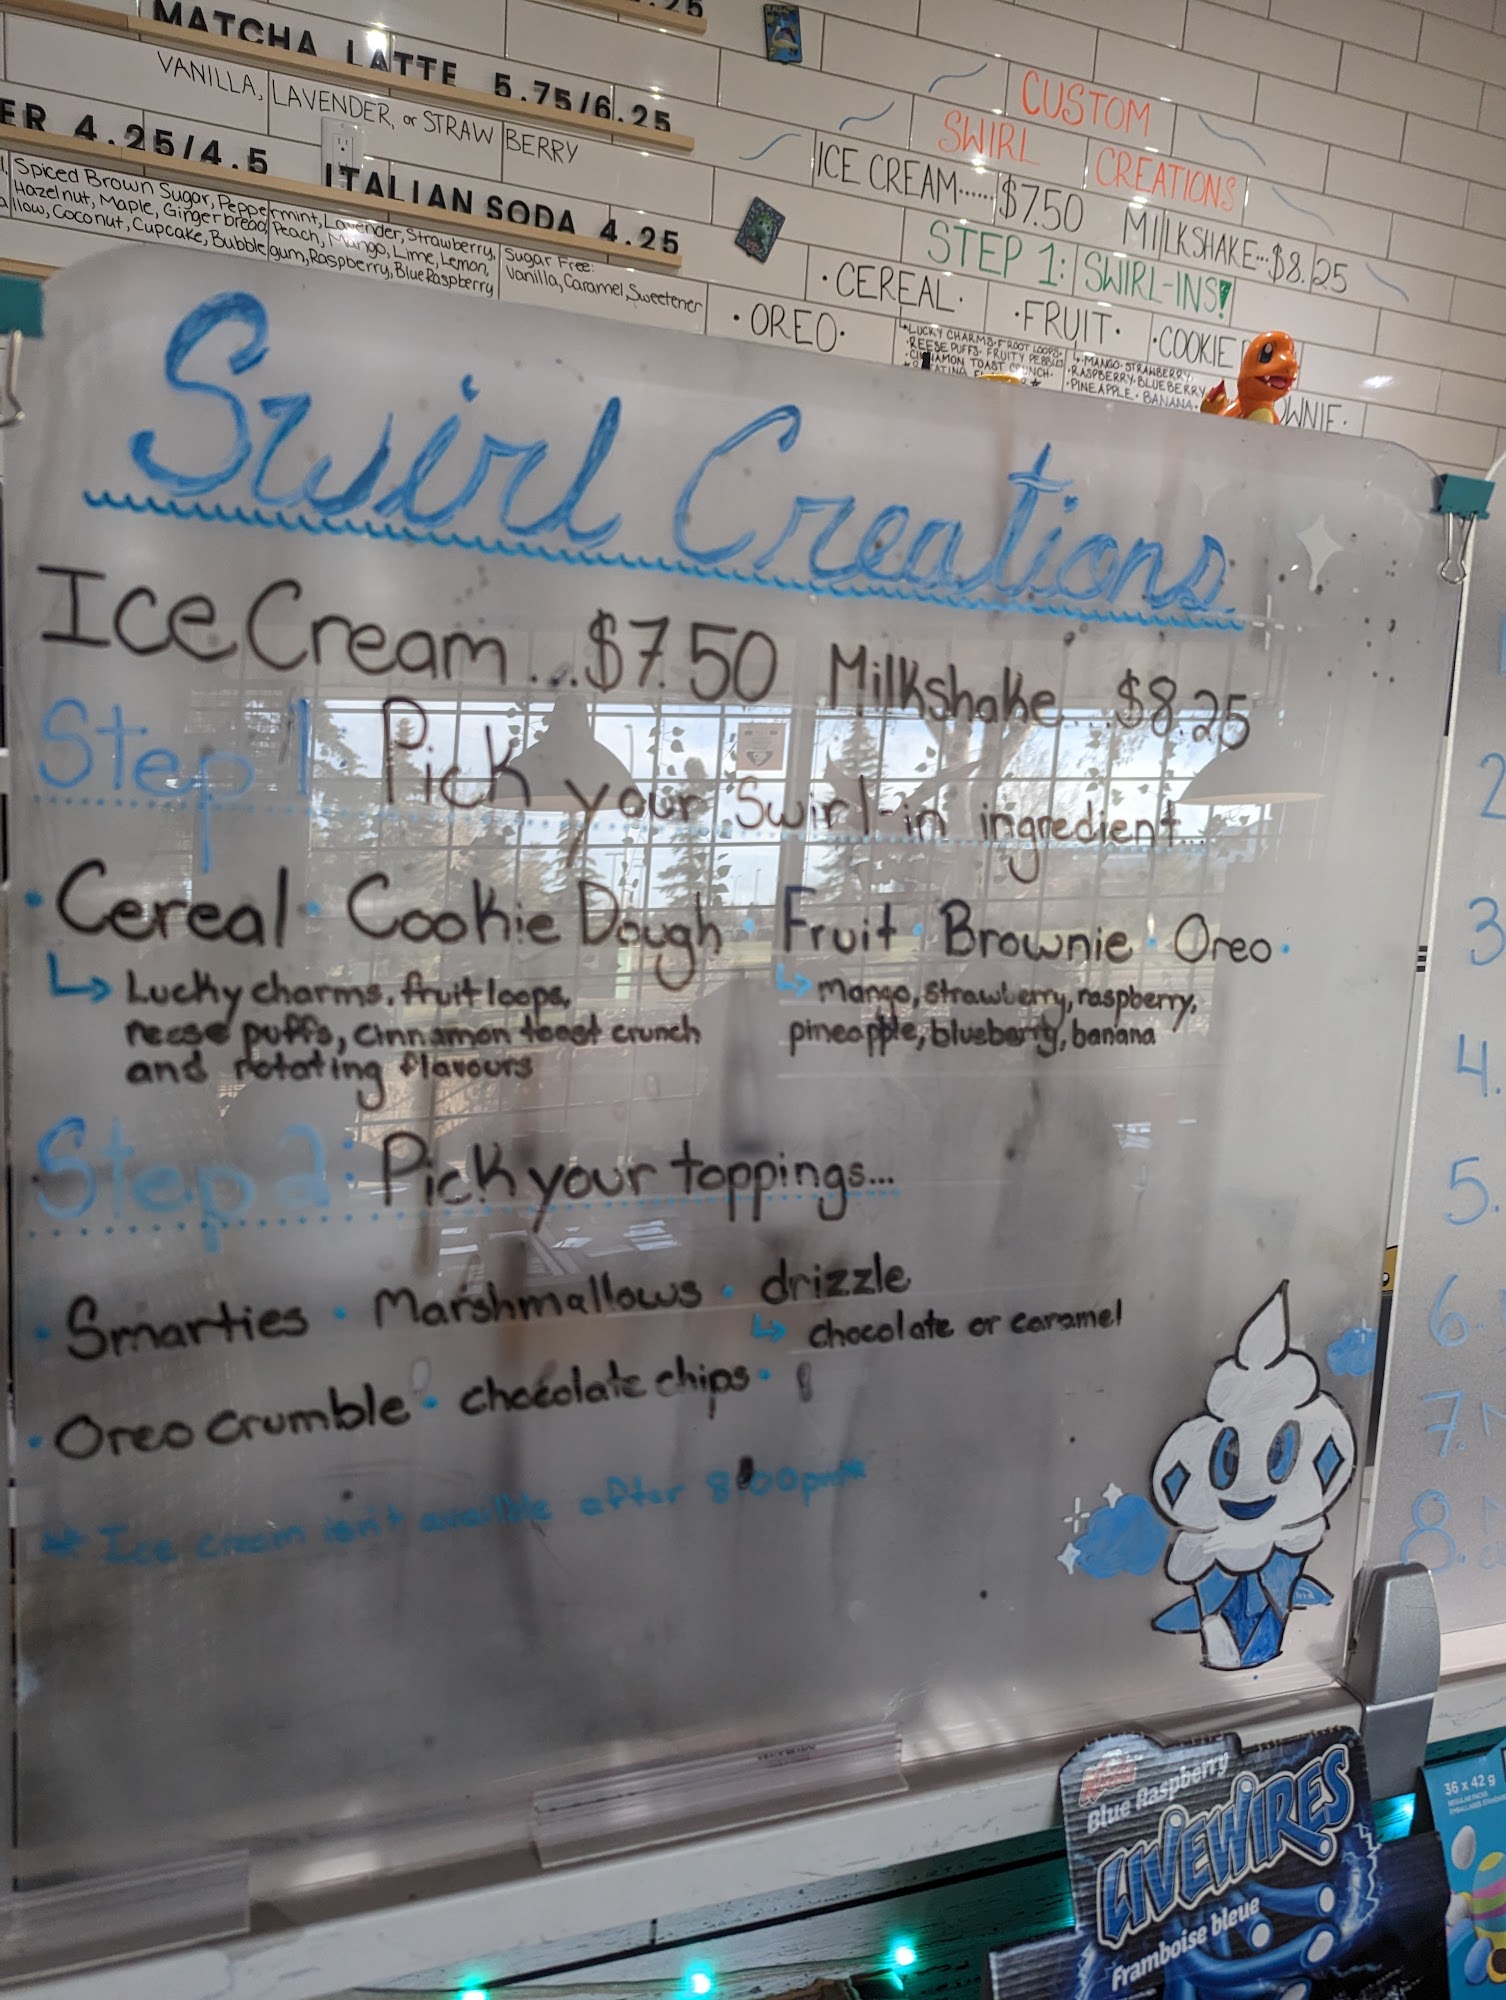 MATCHA LATTE 5.75/6.25
VANILLA, LAVENDER, or STRAWBERRY
ER 4.25/4.5
ITALIAN SODA 4.25
Spiced Brown Sugar, Peppermint, Lavender, Strawberry,
Hazelnut, Maple, Gingerbread, Peach, Mango, Lime, Lemon,
allow, Coconut, Cupcake, Bubblegum, Raspberry, Blue Raspberry
Sugar Free:
Vanilla, Caramel, Sweetener
CUSTOM
SWIRL CREATIONS
ICE CREAM......$7.50 MILKSHAKE...$8.25
STEP 1: SWIRL-INS!
·OREO· ·CEREAL· ·FRUIT· ·COOKIE D
OWNIE·
LUCKY CHARMS·FROOT LOOPS·
·REESE PUFFS·FRUITY PEBBLES
·CINNAMON TOAST CRUNCH·
·MANGO·STRAWBERRY·
·RASPBERRY·BLUEBERRY
·PINEAPPLE·BANANA·
Swirl Creations
Ice Cream...$7.50 Milkshake...$8.25
Step 1: Pick your Swirl-in ingredient...
·Cereal·Cookie Dough·Fruit·Brownie·Oreo·
↳ Lucky charms, fruit loops,
reese puffs, cinnamon toast crunch
and rotating flavours
↳ mango, strawberry, raspberry,
pineapple, blueberry, banana
Step 2: Pick your toppings...
·Smarties·Marshmallows·drizzle
↳ chocolate or caramel
·Oreo crumble·chocolate chips·
* Ice cream isn't available after 8:00pm*
2
3
4.
5.
6.
7.
8.
Blue Raspberry
LIVEWIRES
Framboise bleue
36 x 42 g